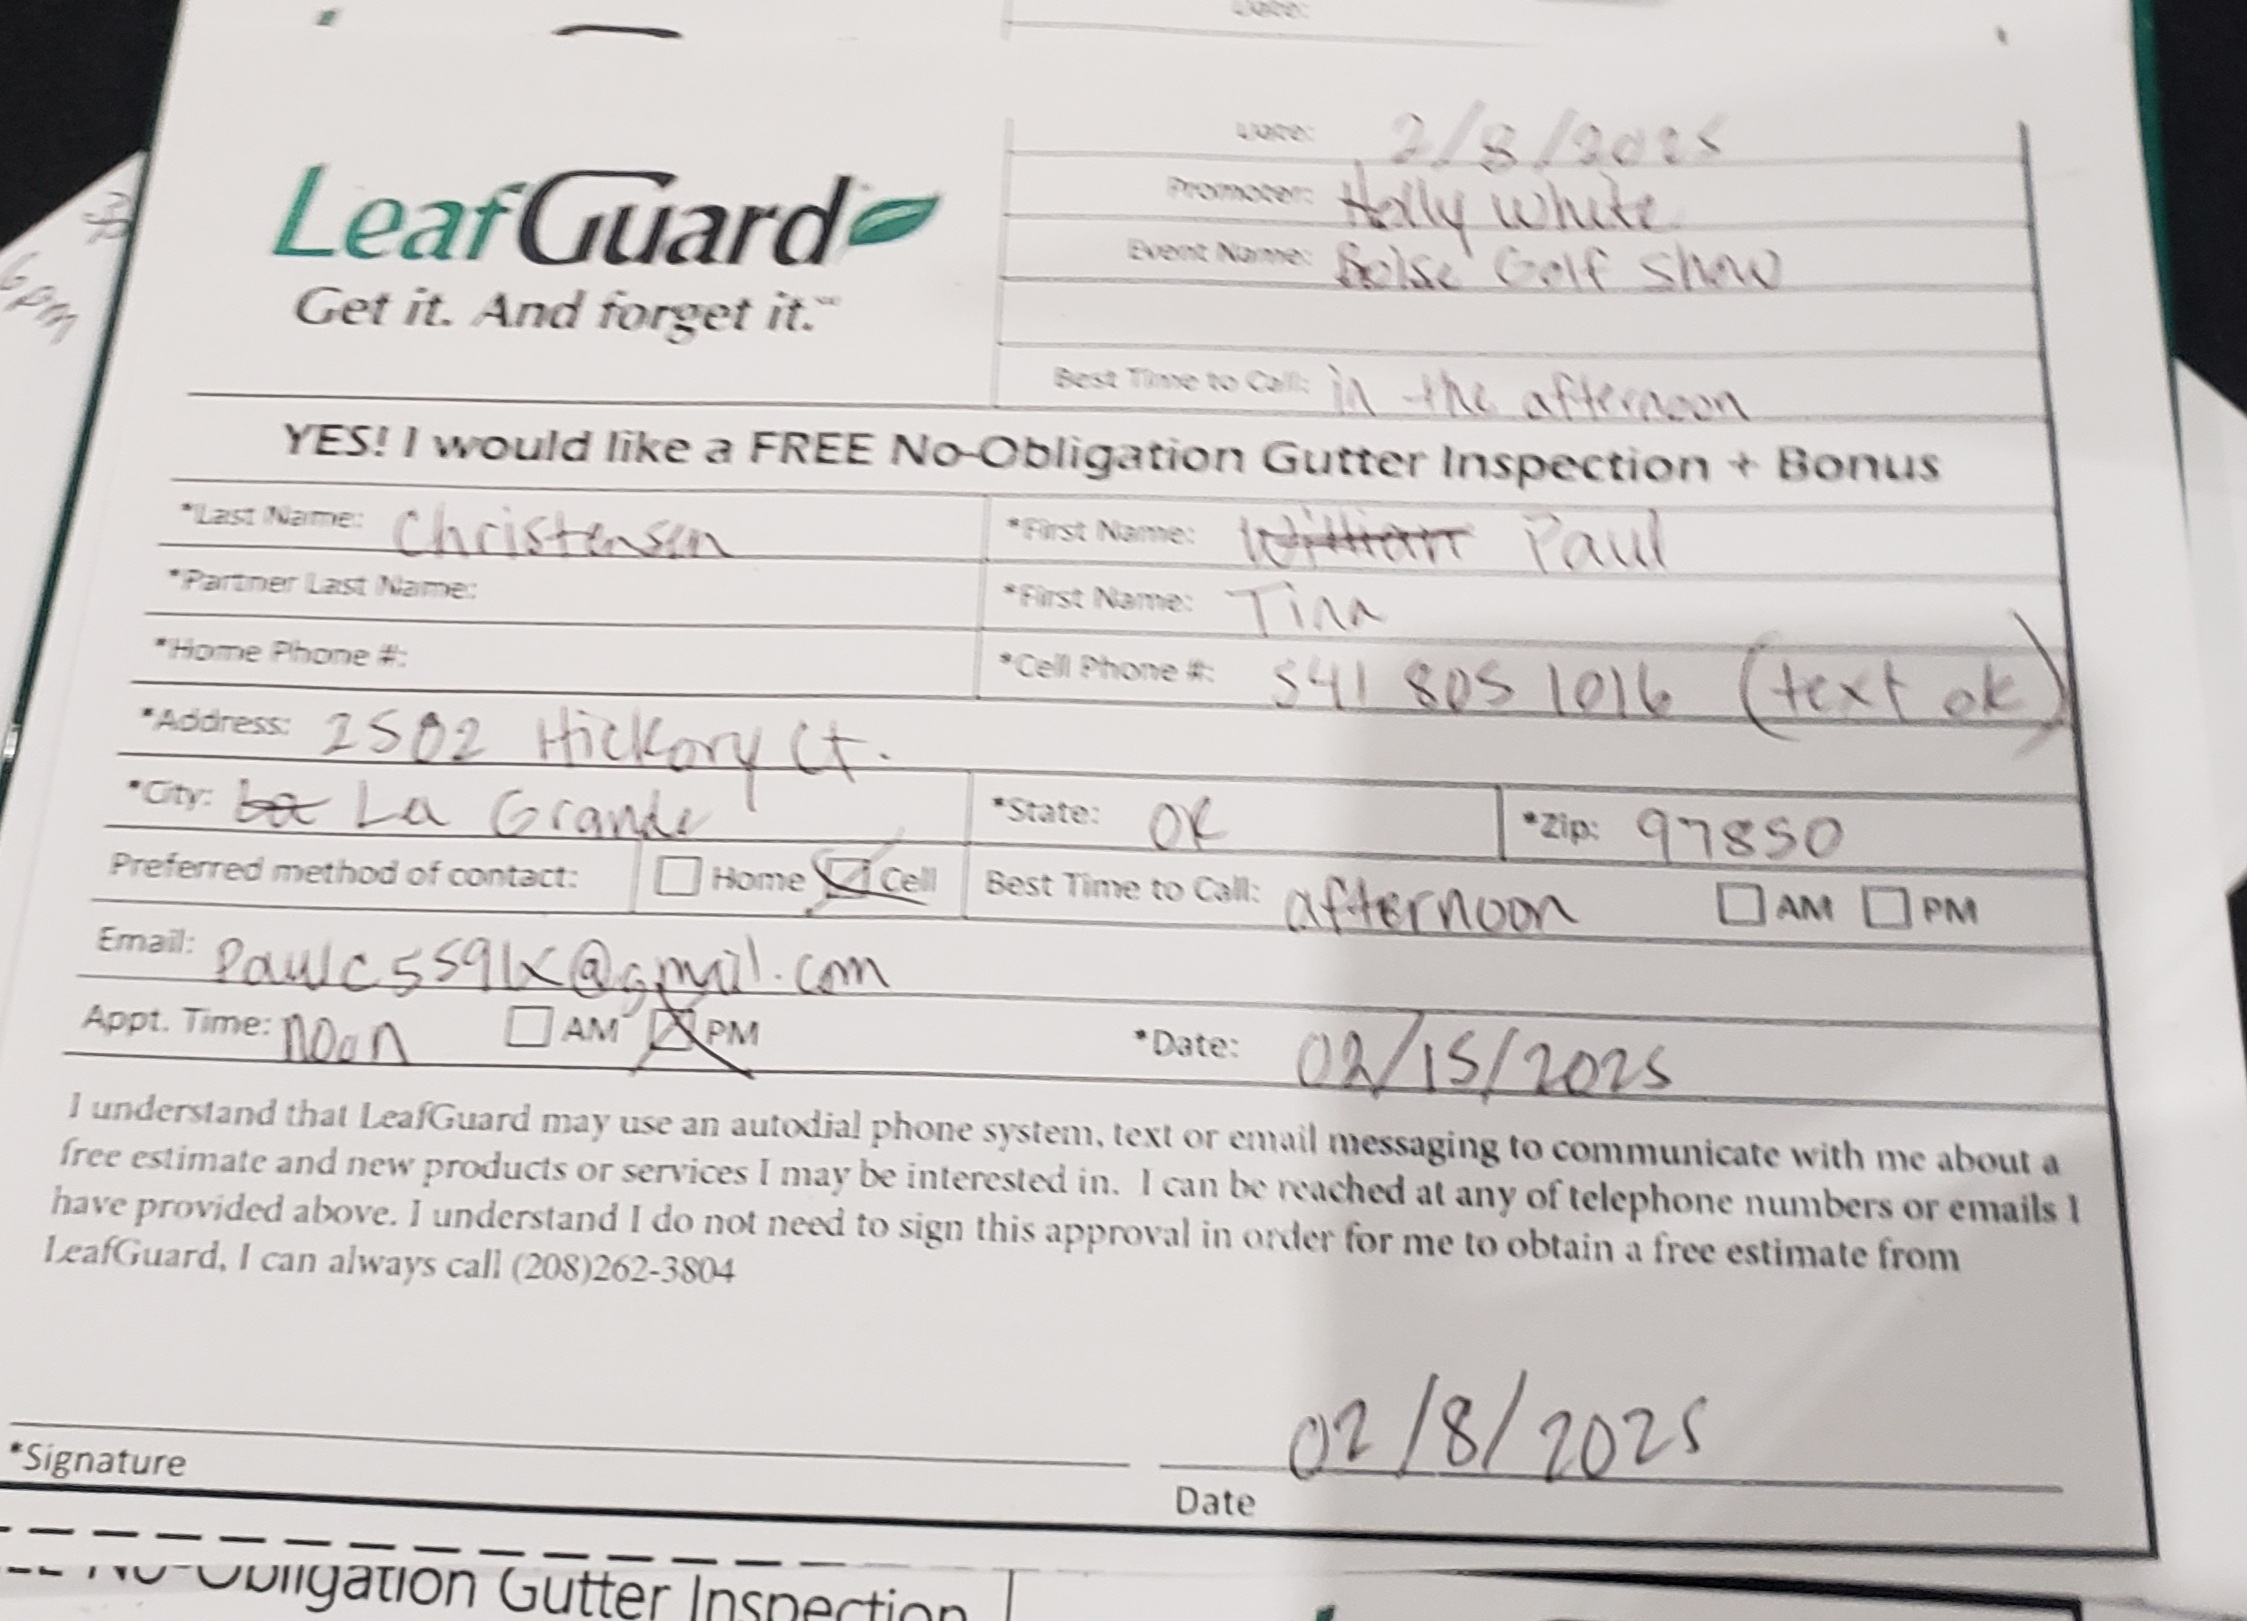 Date:
Date: 2/8/2025
Promoter: Holly White
Event Name: Boise Golf Show
LeafGuard
Get it. And forget it.
Best Time to Call: in the afternoon
6pm
YES! I would like a FREE No-Obligation Gutter Inspection + Bonus
*Last Name: Christensen *First Name: William Paul
*Partner Last Name: *First Name: Tina
*Home Phone #: *Cell Phone #: 541 805 1016 (text ok)
*Address: 2502 Hickory Ct.
*City: La La Grande *State: OR *Zip: 97850
Preferred method of contact: Home Cell Best Time to Call: afternoon AM PM
Email: Paulc5591x@gmail.com
Appt. Time: Noon AM PM *Date: 02/15/2025
I understand that LeafGuard may use an autodial phone system, text or email messaging to communicate with me about a
free estimate and new products or services I may be interested in. I can be reached at any of telephone numbers or emails I
have provided above. I understand I do not need to sign this approval in order for me to obtain a free estimate from
LeafGuard, I can always call (208)262-3804
02/8/2025
*Signature Date
No-Obligation Gutter Inspection